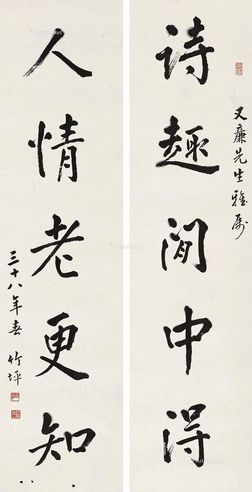 又廉先生雅属
诗趣闲中得
人情老更知
三十八年春 竹坪